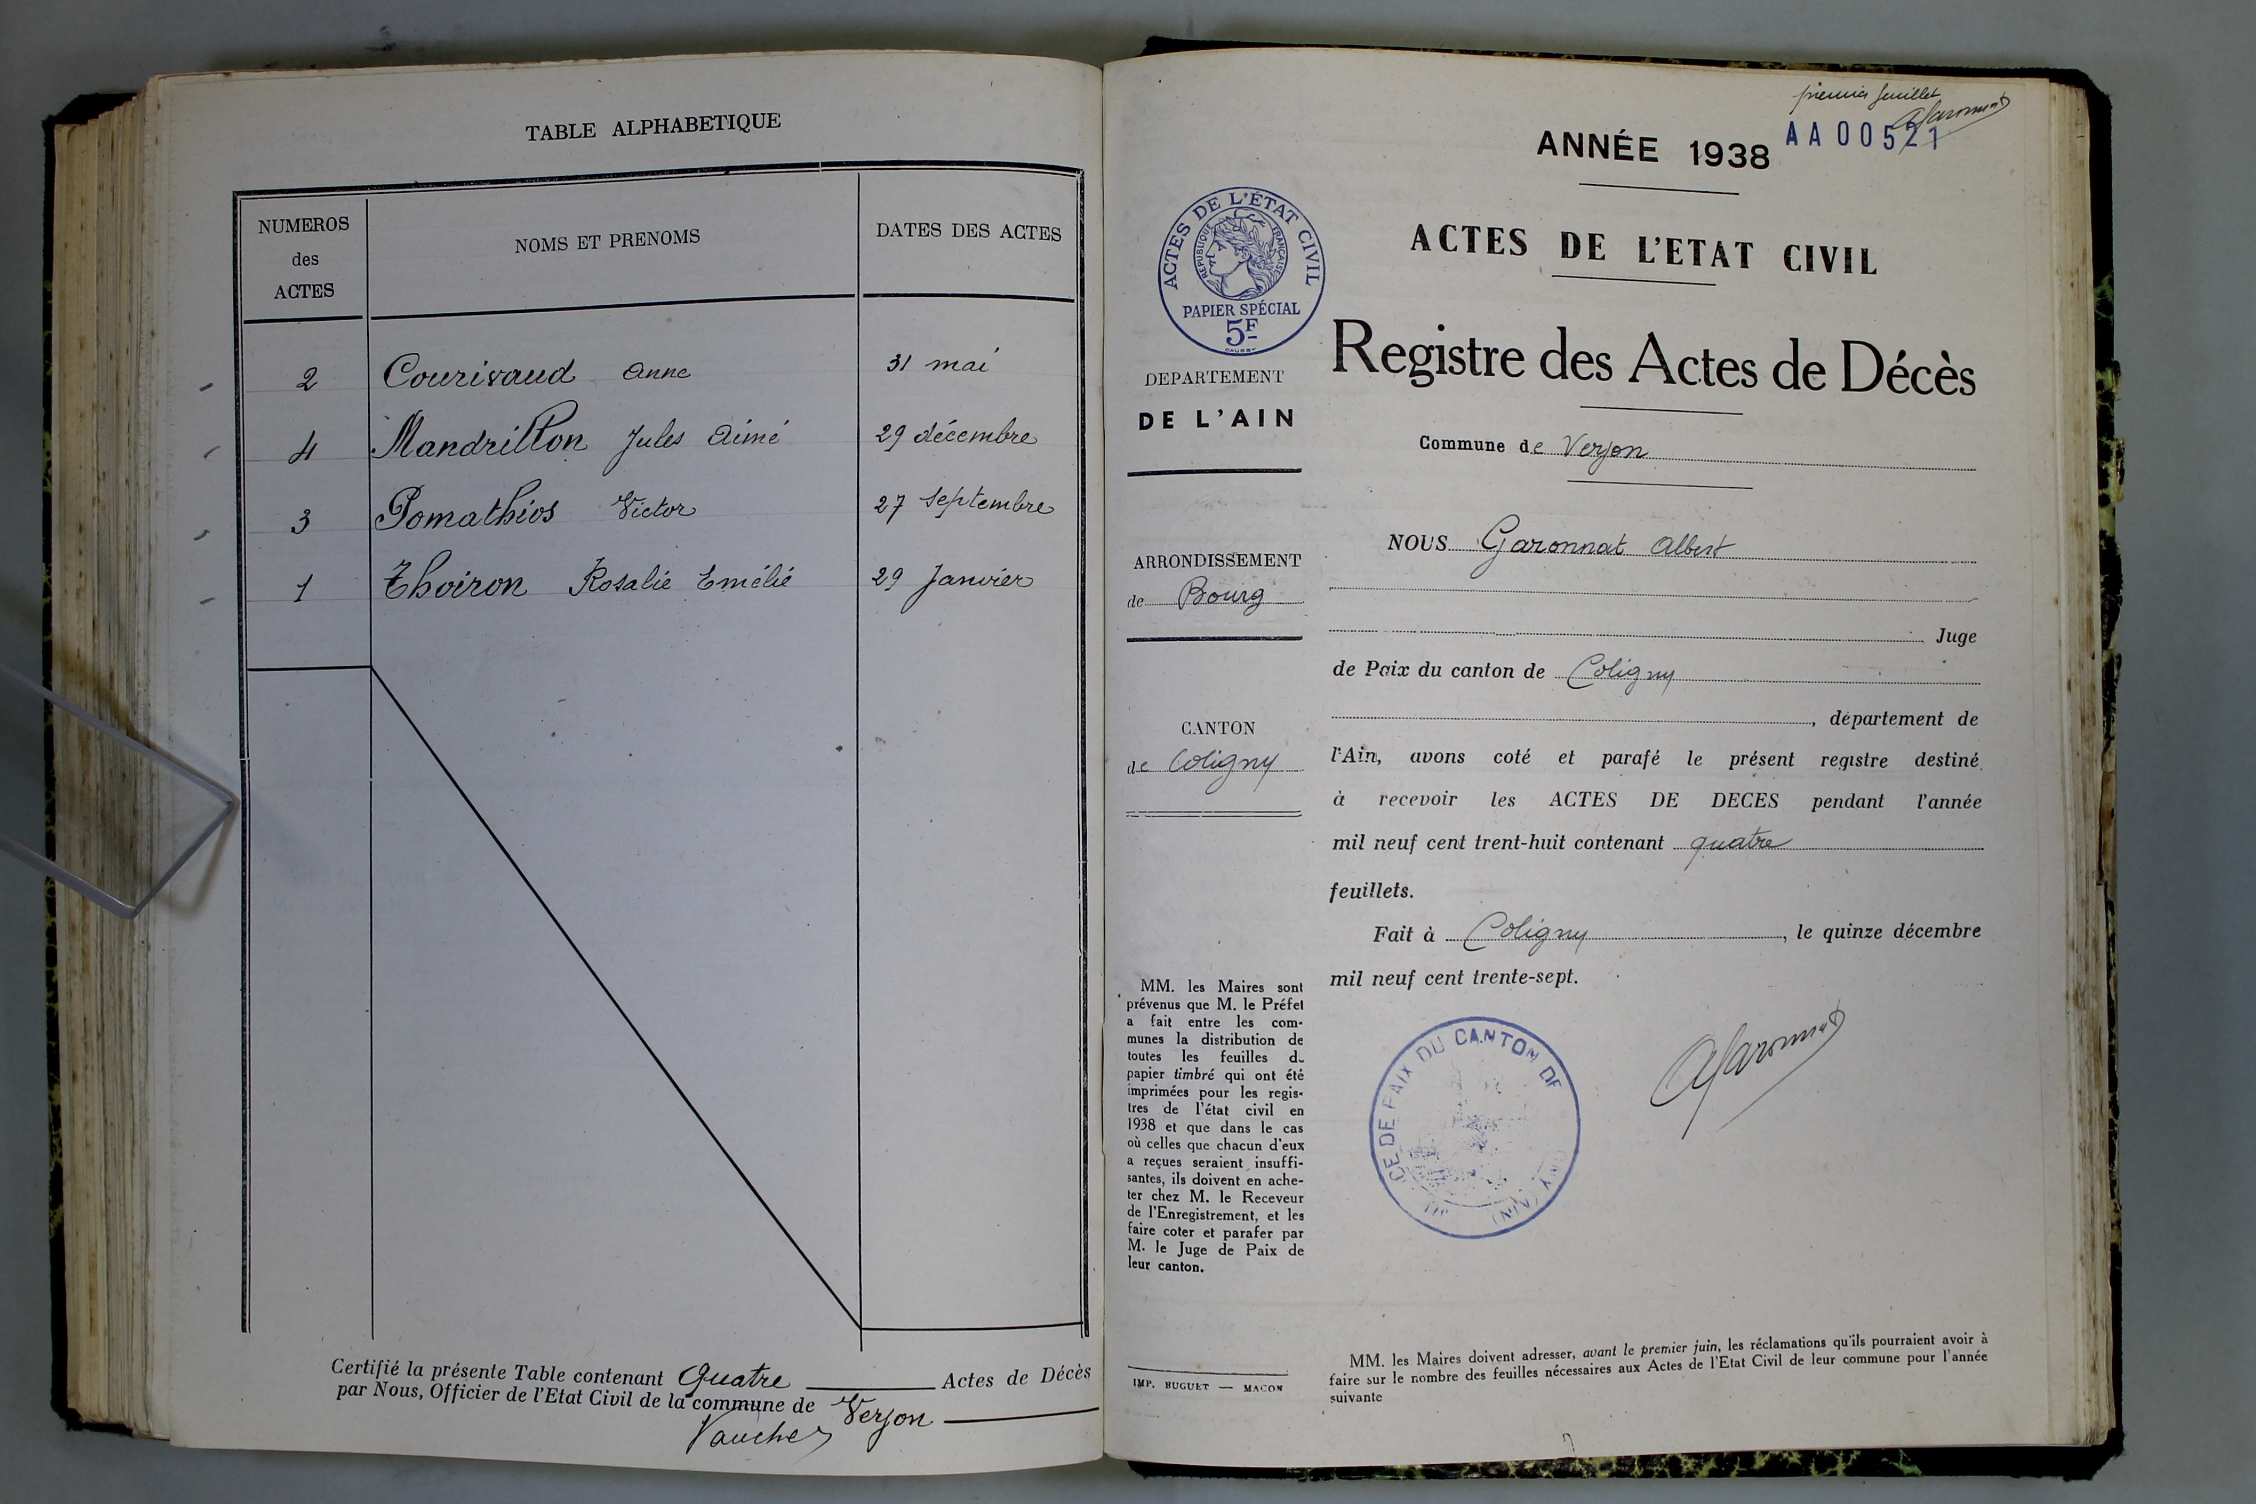 TABLE ALPHABETIQUE
NUMEROS
des
ACTES
NOMS ET PRENOMS
DATES DES ACTES
2 Courivaud Anne 31 mai
4 Mandrillon Jules Aimé 29 décembre
3 Pomathios Victor 27 Septembre
1 Thoiron Rosalie Emélie 29 Janvier
Certifié la présente Table contenant Quatre Actes de Décès
par Nous, Officier de l'Etat Civil de la commune de Verjon
Vaucher
premier feuillet
AGaronnat
ANNÉE 1938
AA00521
ACTES DE L'ETAT CIVIL
ACTES DE L'ÉTAT CIVIL
RÉPUBLIQUE FRANÇAISE
PAPIER SPÉCIAL
5F
Registre des Actes de Décès
DEPARTEMENT
DE L'AIN
Commune de Verjon
ARRONDISSEMENT
de Bourg
CANTON
de Coligny
NOUS Garonnat Albert
Juge
de Paix du canton de Coligny
, département de
l'Ain, avons coté et parafé le présent registre destiné
à recevoir les ACTES DE DECES pendant l'année
mil neuf cent trent-huit contenant quatre
feuillets.
Fait à Coligny, le quinze décembre
mil neuf cent trente-sept.
AGaronnat
CE DE PAIX DU CANTON DE
(AIN)
MM. les Maires sont
prévenus que M. le Préfet
a fait entre les com-
munes la distribution de
toutes les feuilles du
papier timbré qui ont été
imprimées pour les regis-
tres de l'état civil en
1938 et que dans le cas
où celles que chacun d'eux
a reçues seraient insuffi-
santes, ils doivent en ache-
ter chez M. le Receveur
de l'Enregistrement, et les
faire coter et parafer par
M. le Juge de Paix de
leur canton.
IMP. BUGUET — MACON
MM. les Maires doivent adresser, avant le premier juin, les réclamations qu'ils pourraient avoir à
faire sur le nombre des feuilles nécessaires aux Actes de l'Etat Civil de leur commune pour l'année
suivante